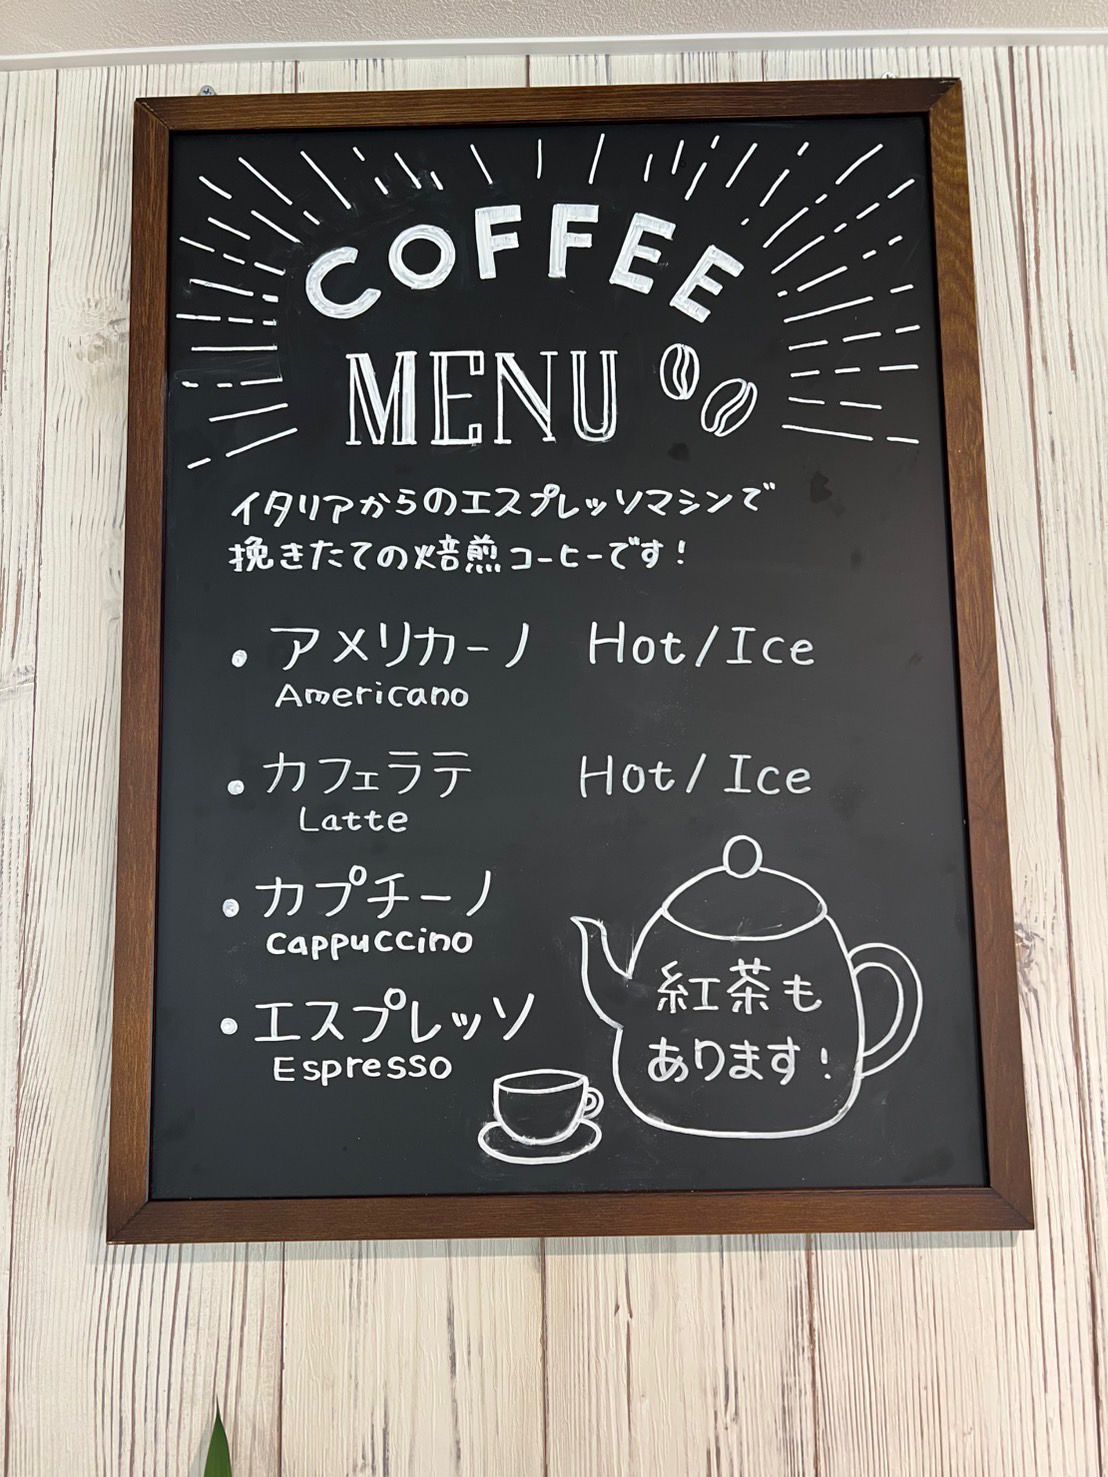 COFFEE
MENU
イタリアからのエスプレッソマシンで
挽きたての焙煎コーヒーです!
・アメリカーノ Hot/Ice
Americano
・カフェラテ Hot/Ice
Latte
・カプチーノ
Cappuccino
・エスプレッソ
Espresso
紅茶も
あります!